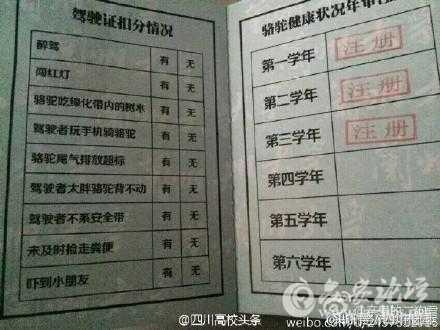 驾驶证扣分情况
醉驾 有 无
闯红灯 有 无
骆驼吃绿化带内的树木 有 无
驾驶者玩手机骑骆驼 有 无
骆驼尾气排放超标 有 无
驾驶者太胖骆驼背不动 有 无
驾驶者不系安全带 有 无
未及时捡走粪便 有 无
吓到小朋友 有 无
骆驼健康状况年审
第一学年 注册
第二学年 注册
第三学年 注册
第四学年
第五学年
第六学年
@四川高校头条